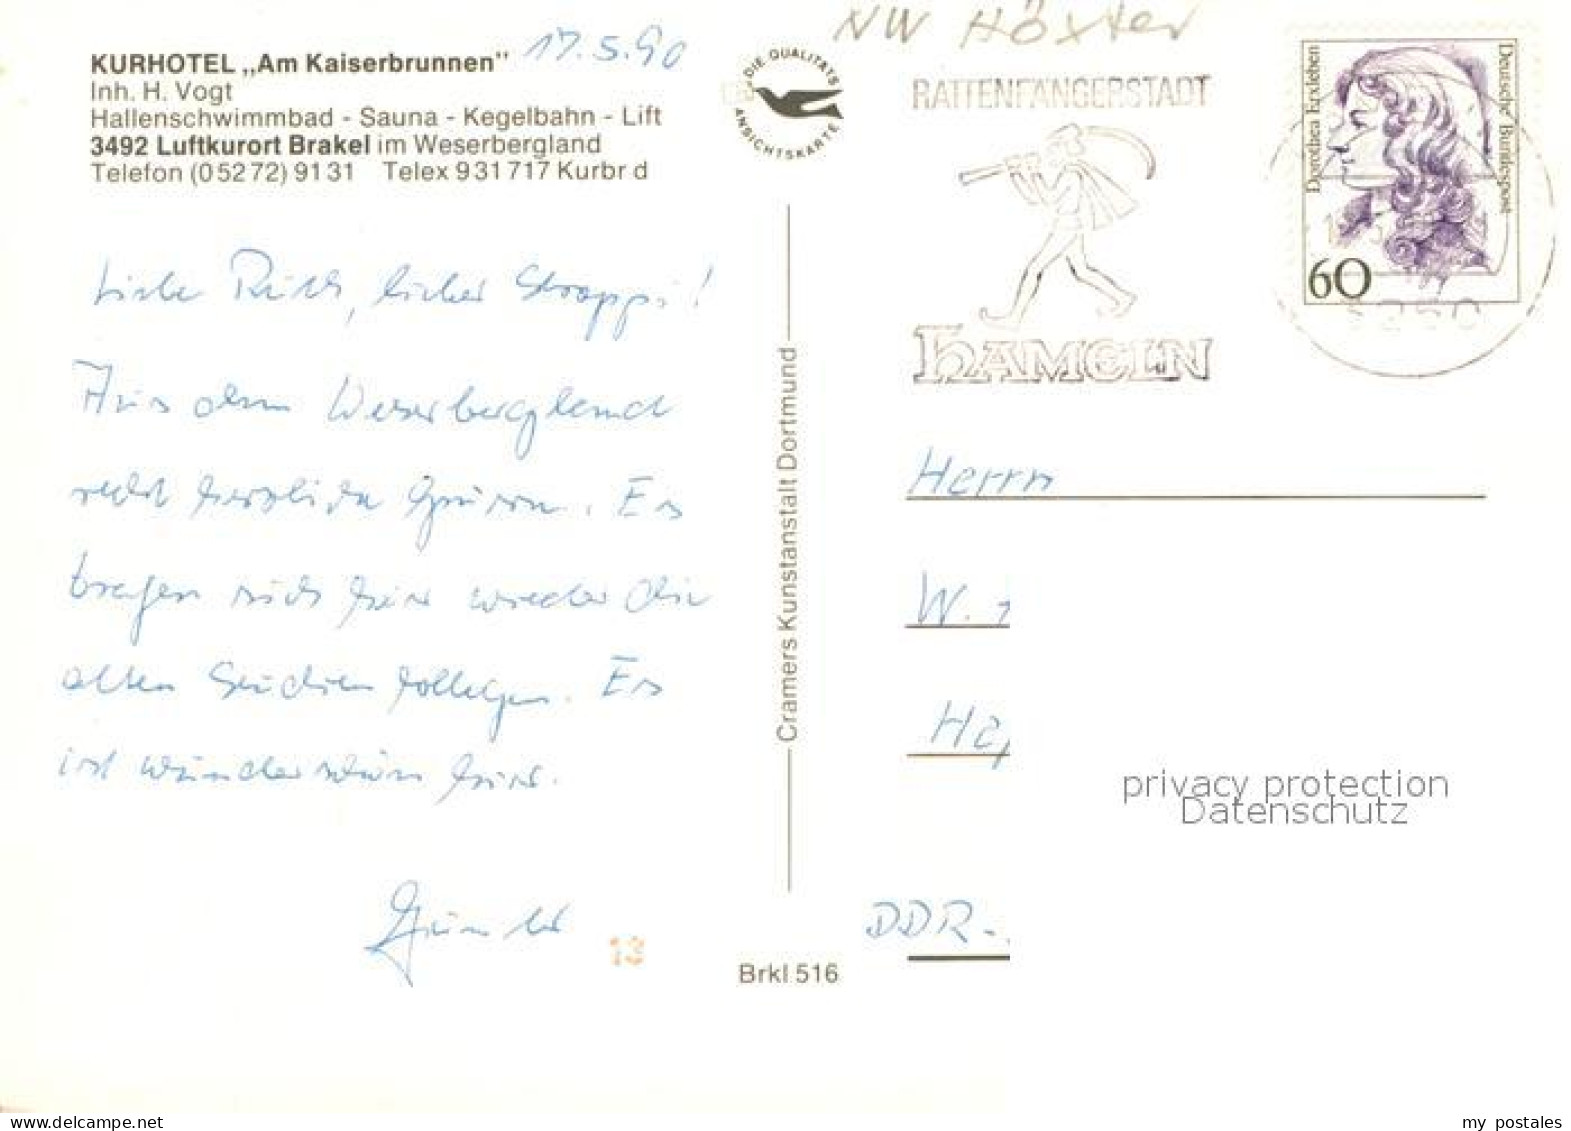 NW Höxter
KURHOTEL „Am Kaiserbrunnen" 17.5.90
Inh. H. Vogt
Hallenschwimmbad - Sauna - Kegelbahn - Lift
3492 Luftkurort Brakel im Weserbergland
Telefon (05272) 9131 Telex 931717 Kurbr d
DIE QUALITÄTS
ANSICHTSKARTE
RATTENFÄNGERSTADT
HAMELN
Dorothea Erxleben
Deutsche Bundespost
60
Liebe Ruth, lieber Stroppi!
Aus dem Weserbergland
recht herzliche Grüsse. Es
trafen sich hier wieder die
alten Studienkollegen. Es
ist wunderschön hier.
Günter
13
Cramers Kunstanstalt Dortmund
Brkl 516
Herrn
W.
DDR-
privacy protection
Datenschutz
my postales